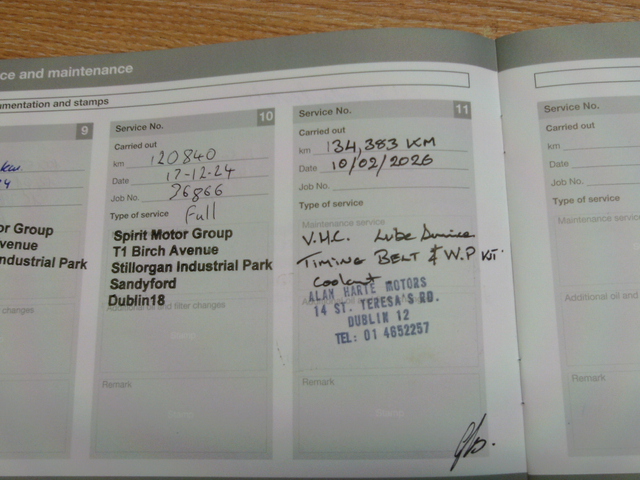 ce and maintenance
umentation and stamps
9
r Group
venue
ndustrial Park
changes
Service No. 10
Carried out
km 120840
Date 17-12-24
Job No. 36866
Type of service Full
Spirit Motor Group
T1 Birch Avenue
Stillorgan Industrial Park
Sandyford
Dublin18
Additional oil and filter changes
Remark
Service No. 11
Carried out
km 134,383 KM
Date 10/02/2026
Job No.
Type of service
Maintenance service
V.H.C. Lube Service
TIMING BELT & W.P KIT.
Coolant
ALAN HARTE MOTORS
14 ST. TERESA'S RD.
DUBLIN 12
TEL: 01 4652257
Remark
Service No.
Carried out
km
Date
Job No.
Type of service
Maintenance serv
Additional oil and
Remark